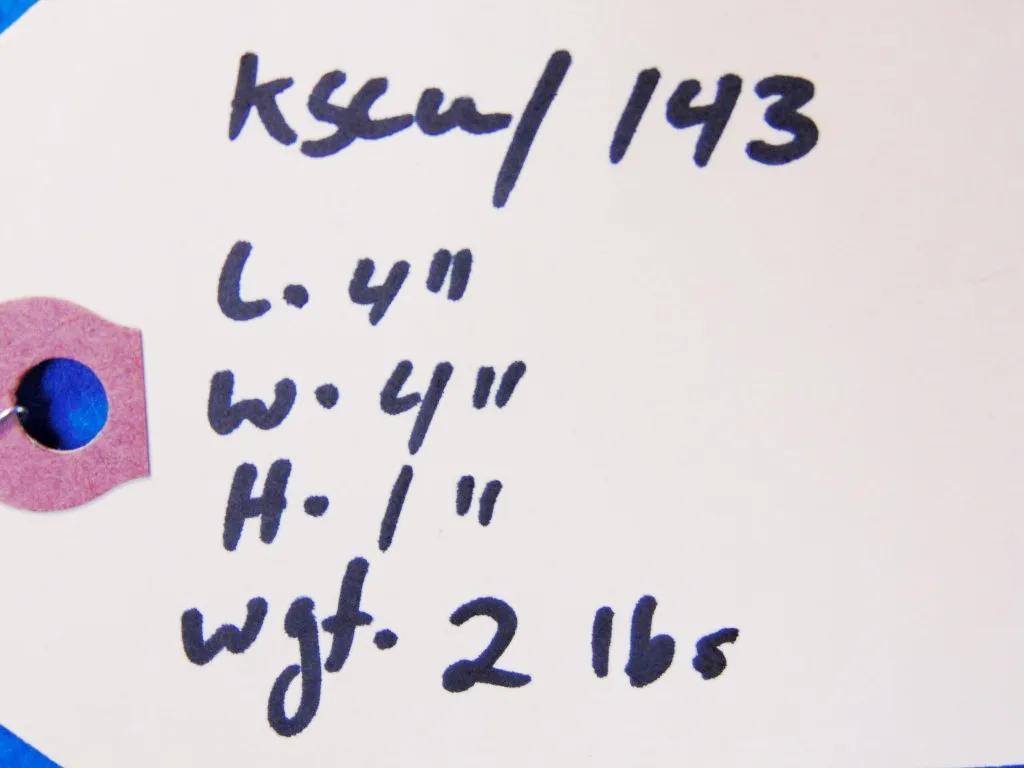 kscu/ 143
L. 4"
W. 4"
H. 1"
Wgt. 2 lbs